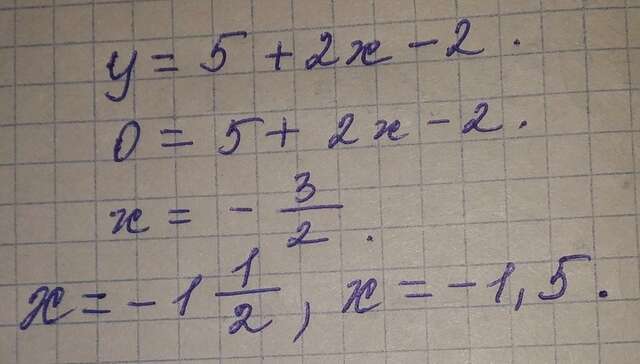 y = 5 + 2x - 2.
0 = 5 + 2x - 2.
x = - 3/2.
x = - 1 1/2, x = - 1,5.